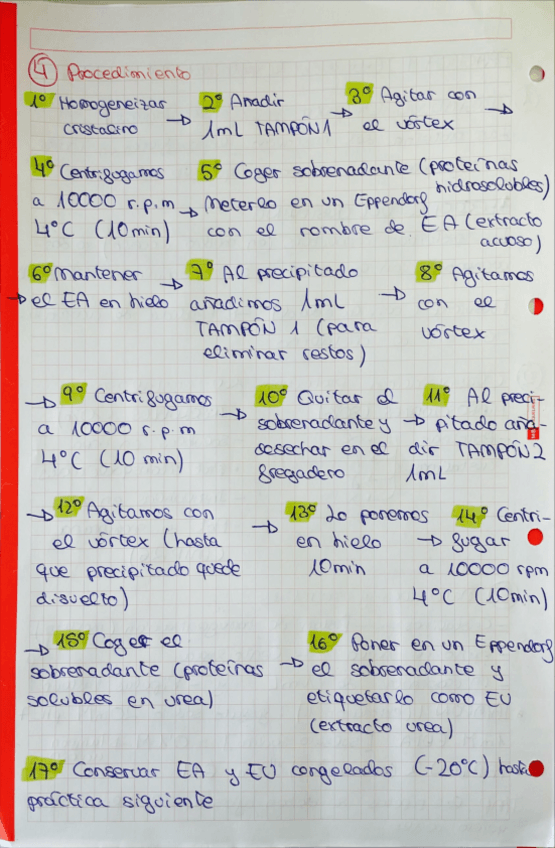 ④ Procedimiento
1º Homogeneizar
cristalino →
2º Añadir
1mL TAMPÓN 1 →
3º Agitar con
el vórtex →
4º Centrifugamos
a 10000 r.p.m →
4ºC (10 min)
5º Coger sobrenadante (proteínas
hidrosolubles)
Meterlo en un Eppendorf
con el nombre de EA (extracto
acuoso)
6º Mantener
→ el EA en hielo →
7º Al precipitado
añadimos 1mL
TAMPÓN 1 (para
eliminar restos)
→ 8º Agitamos
con el
vórtex
→ 9º Centrifugamos
a 10000 r.p.m
4ºC (10 min)
→ 10º Quitar el
sobrenadante y
desechar en el
fregadero
11º Al preci-
→ pitado aña-
dir TAMPÓN 2
1mL
→ 12º Agitamos con
el vórtex (hasta
que precipitado quede
disuelto)
→ 13º Lo ponemos
en hielo
10min
14º Centri-
→ fugar
a 10000 rpm
4ºC (10min)
→ 15º Coger el
sobrenadante (proteínas
solubles en urea)
→ 16º Poner en un Eppendorf
el sobrenadante y
etiquetarlo como EU
(extracto urea)
17º Conservar EA y EU congelados (-20ºC) hasta
práctica siguiente